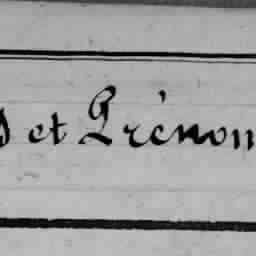 s et Prénom